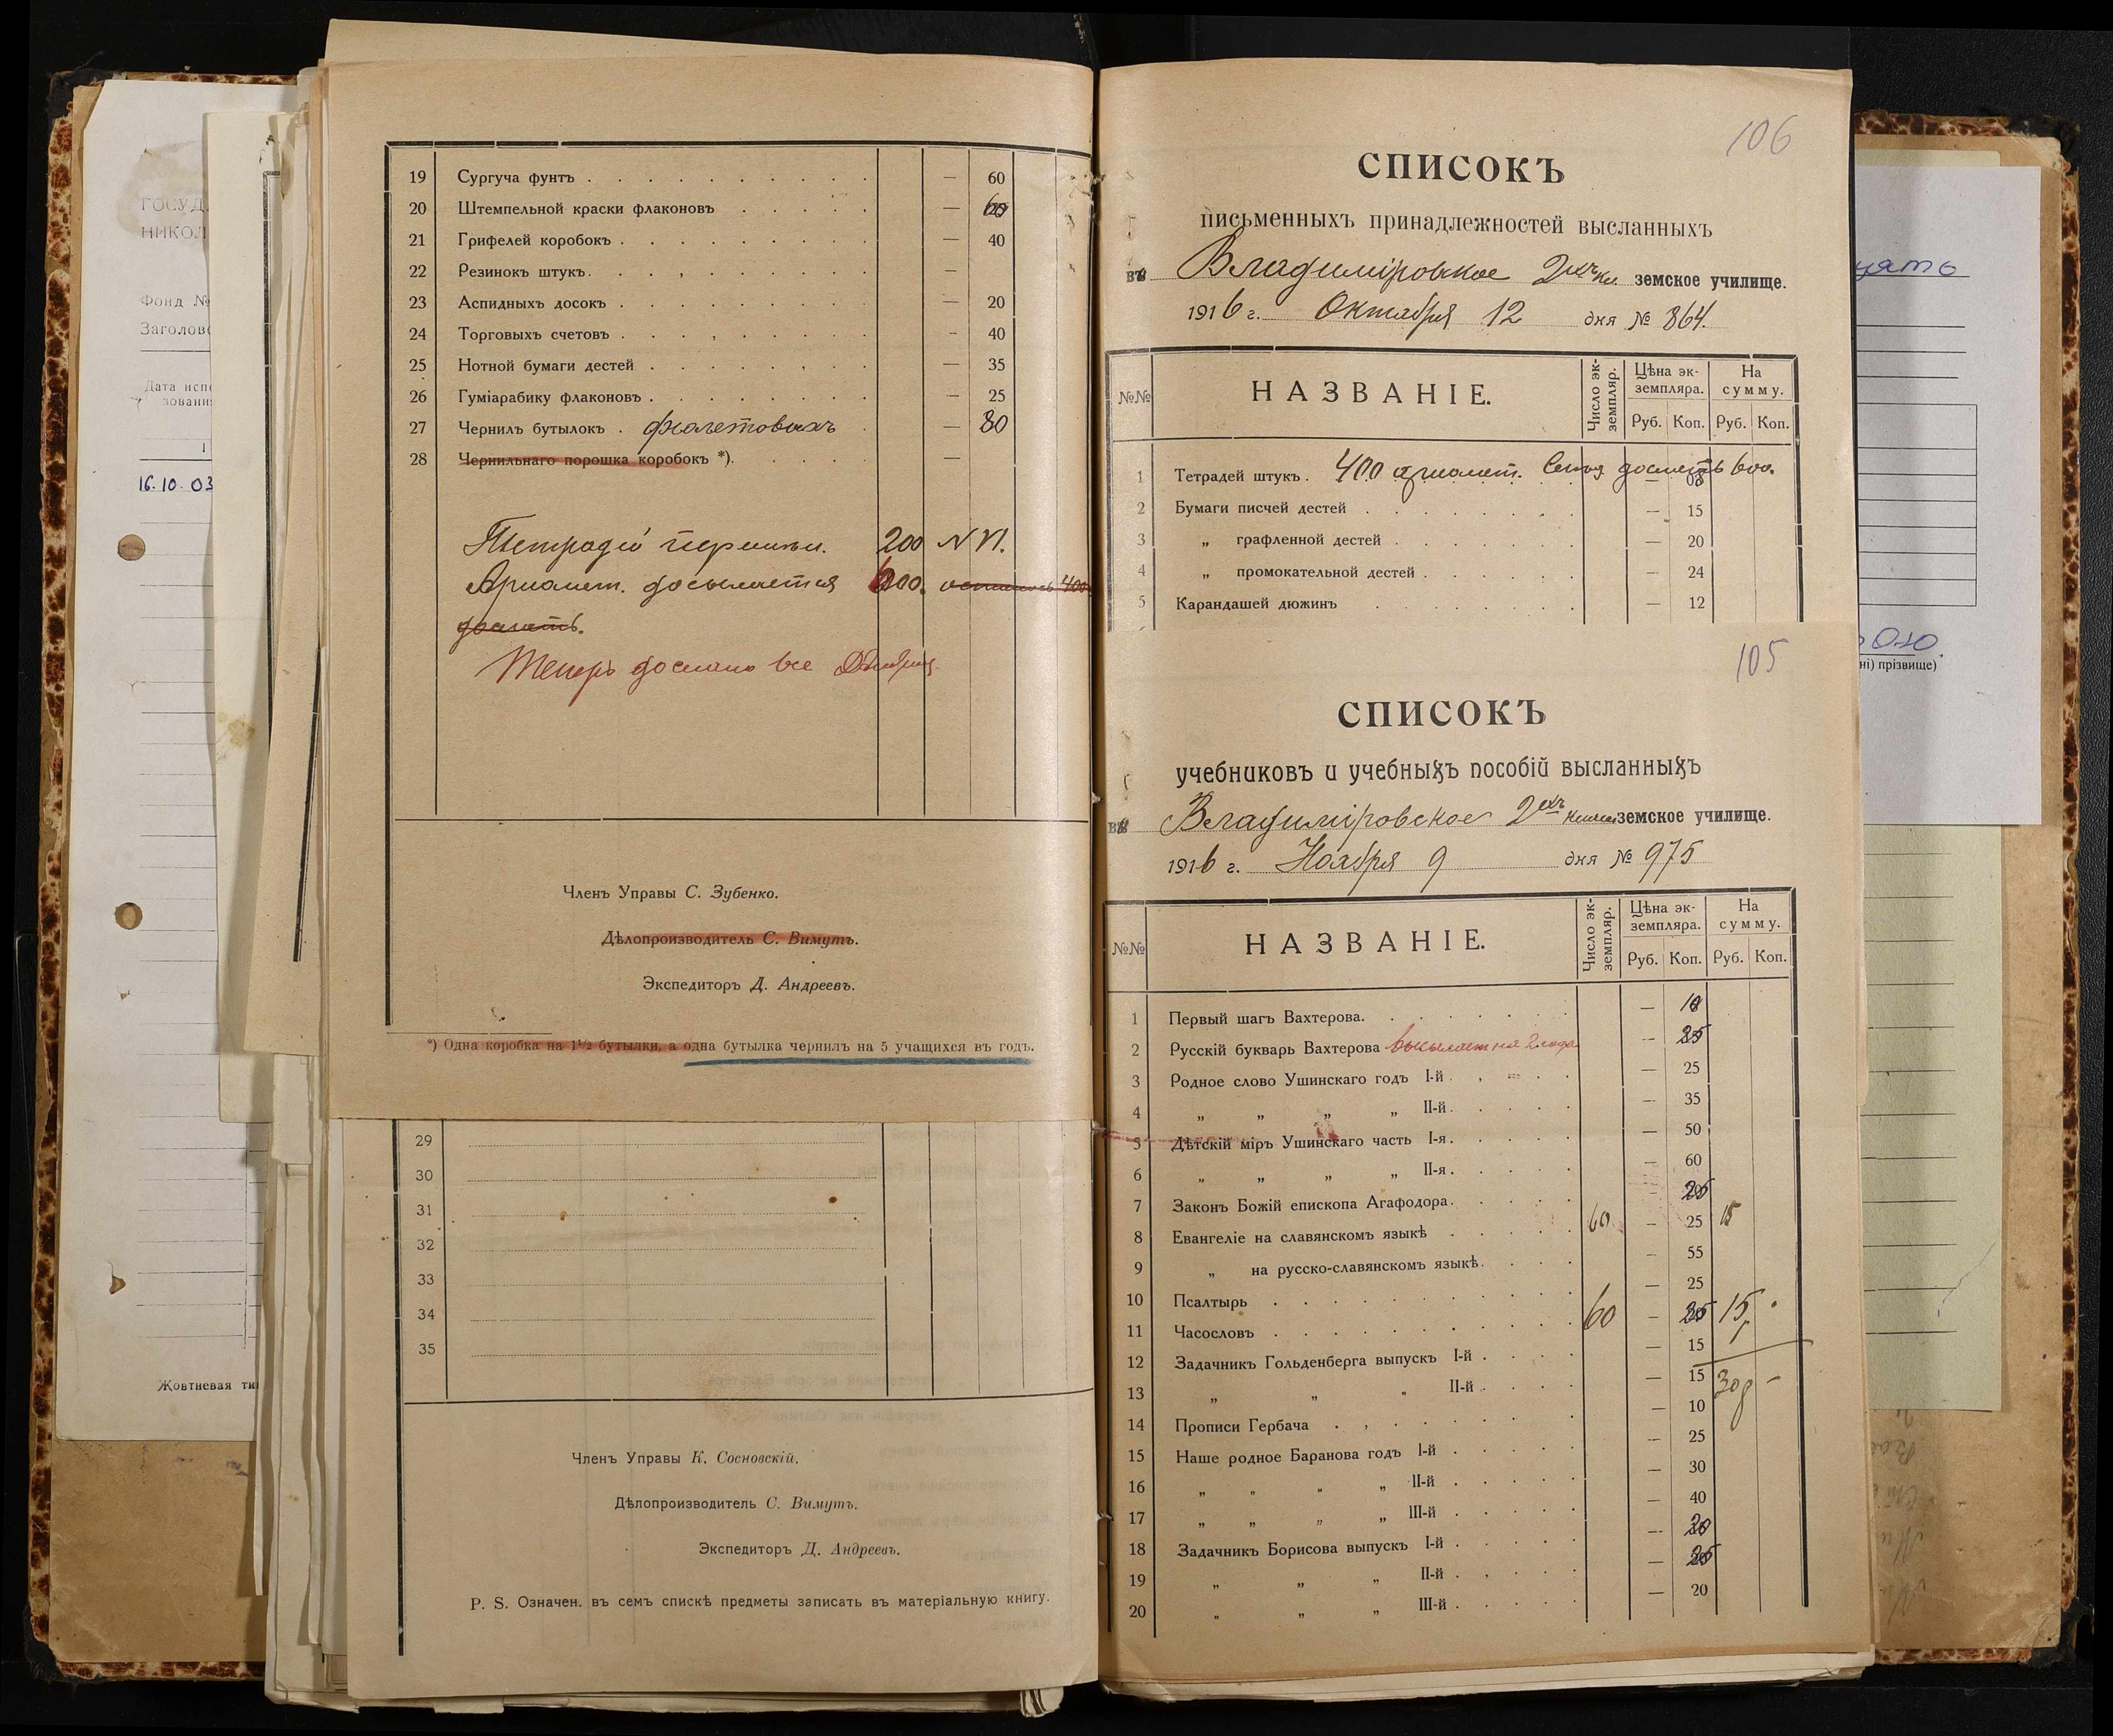 ГОСУД
НИКОЛ
Фонд №
Заголов
Дата исп
зовани
1
16.10.03
Жовтневая ти
19 Сургуча фунтъ — 60
20 Штемпельной краски флаконовъ —
21 Грифелей коробокъ — 40
22 Резинокъ штукъ —
23 Аспидныхъ досокъ — 20
24 Торговыхъ счетовъ — 40
25 Нотной бумаги дестей — 35
26 Гуміарабику флаконовъ — 25
27 Чернилъ бутылокъ фіолетовыхъ — 80
28 Чернильнаго порошка коробокъ *) —
200 N VI.
Ариѳмет. досылается 600. осталось 400
дослать.
Теперь дослано все
Членъ Управы С. Зубенко.
Дѣлопроизводитель С. Вимутъ.
Экспедиторъ Д. Андреевъ.
*) Одна коробка на 1½ бутылки, а одна бутылка чернилъ на 5 учащихся въ годъ.
29
30
31
32
33
34
35
Членъ Управы К. Сосновскій.
Дѣлопроизводитель С. Вимутъ.
Экспедиторъ Д. Андреевъ.
P. S. Означен. въ семъ спискѣ предметы записать въ матеріальную книгу.
106
СПИСОКЪ
письменныхъ принадлежностей высланныхъ
въ Владиміровское 2хъ кл. земское училище.
1916 г. Октября 12 дня № 864.
№№ НАЗВАНІЕ. Число экземпляр. Цѣна экземпляра. На сумму.
Руб. Коп. Руб. Коп.
1 Тетрадей штукъ. 400 ариѳмет. дослать 600.
2 Бумаги писчей дестей — 15
3 „ графленной дестей — 20
4 „ промокательной дестей — 24
5 Карандашей дюжинъ — 12
105
СПИСОКЪ
учебниковъ и учебныхъ пособій высланныхъ
въ Владиміровское 2хъ земское училище.
1916 г. Ноября 9 дня № 975
№№ НАЗВАНІЕ. Число экземпляр. Цѣна экземпляра. На сумму.
Руб. Коп. Руб. Коп.
1 Первый шагъ Вахтерова. — 18
2 Русскій букварь Вахтерова высылает на 2 года — 35
3 Родное слово Ушинскаго годъ I-й — 25
4 „ „ „ „ II-й — 35
5 Дѣтскій міръ Ушинскаго часть I-я — 50
6 „ „ „ „ II-я — 60
7 Законъ Божій епископа Агафодора — 25
8 Евангеліе на славянскомъ языкѣ 60 — 25 15
9 „ на русско-славянскомъ языкѣ — 55
10 Псалтырь — 25
11 Часословъ 60 — 25 15
12 Задачникъ Гольденберга выпускъ I-й — 15
13 „ „ „ II-й — 15 30р –
14 Прописи Гербача — 10
15 Наше родное Баранова годъ I-й — 25
16 „ „ „ „ II-й — 30
17 „ „ „ „ III-й — 40
18 Задачникъ Борисова выпускъ I-й — 20
19 „ „ „ II-й — 25
20 „ „ „ III-й — 20
ні) прізвище)